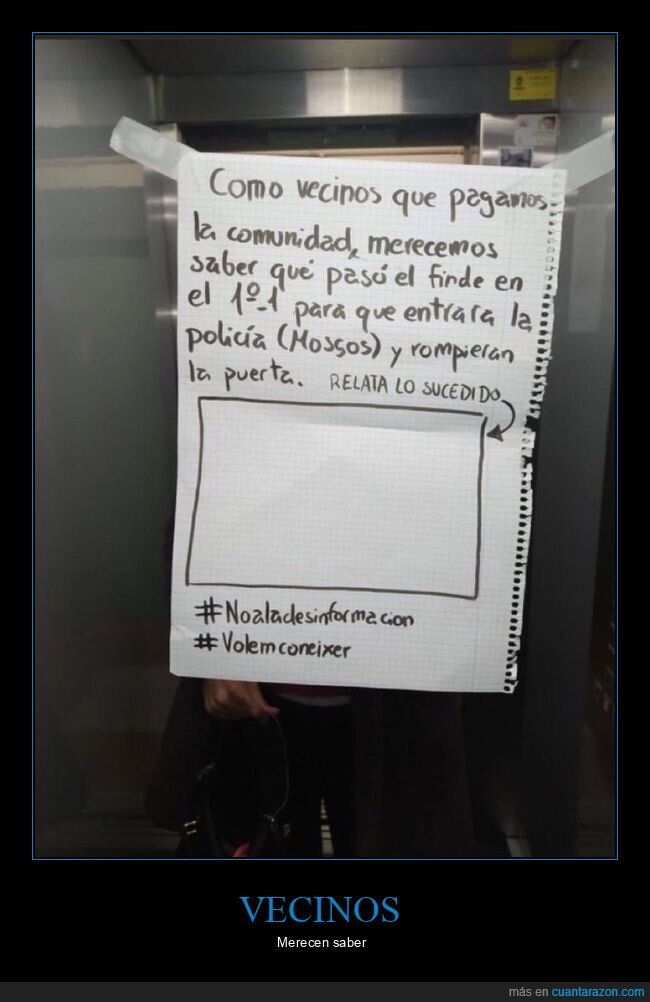 Como vecinos que pagamos
la comunidad, merecemos
saber qué pasó el finde en
el 1º-1 para que entrara la
policía (Mossos) y rompieran
la puerta. RELATA LO SUCEDIDO
#Noaladesinformacion
#Volemconeixer
VECINOS
Merecen saber
más en cuantarazon.com